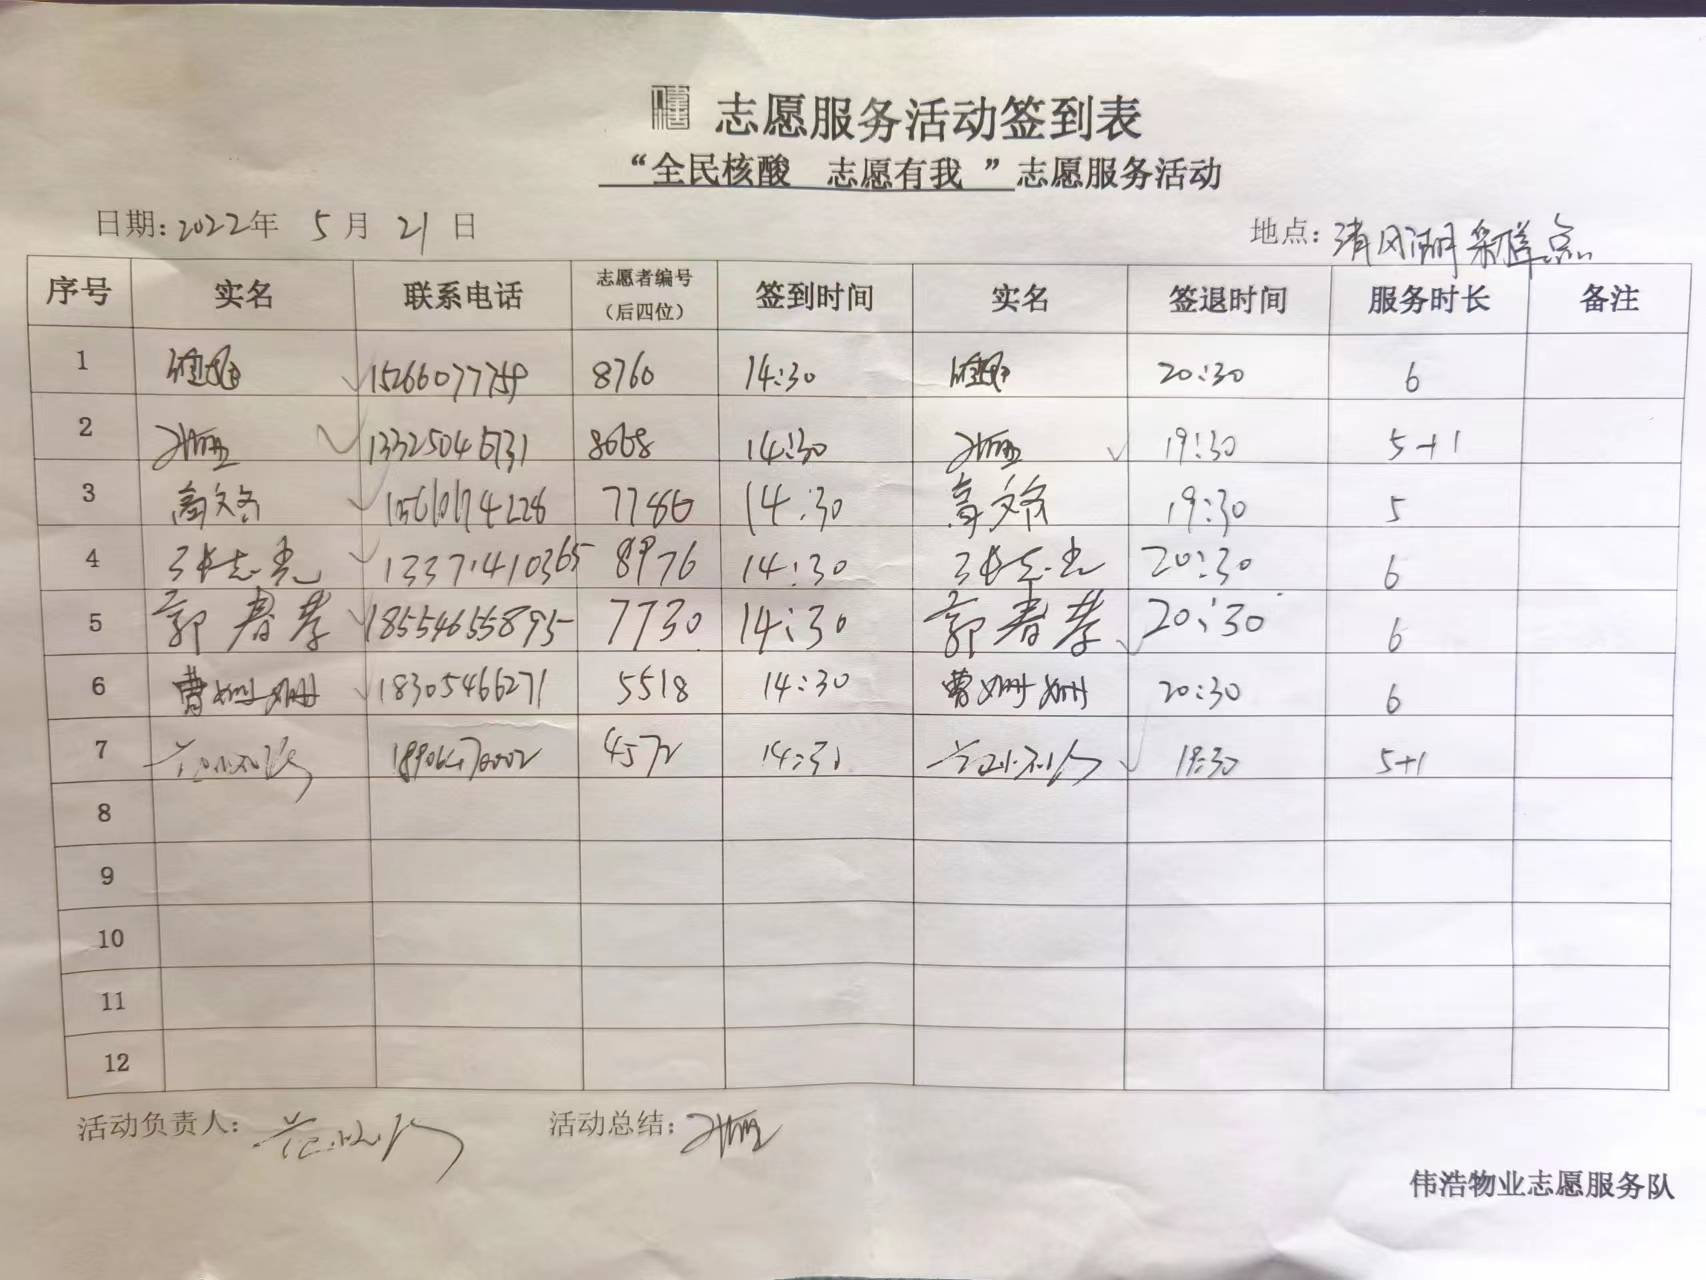 志愿服务活动签到表
“全民核酸 志愿有我 ”志愿服务活动
日期: 2022年 5 月 21 日 地点: 清风湖采样点
序号 实名 联系电话 志愿者编号（后四位） 签到时间 实名 签退时间 服务时长 备注
1 15266077759 8760 14:30 20:30 6
2 8668 14:30 19:30 5+1
3 高文洛 7786 14:30 高文洛 19:30 5
4 张志光 13371410365 8976 14:30 张志光 20:30 6
5 郭春孝 18554655895 7730 14:30 郭春孝 20:30 6
6 曹姗姗 18305466271 5518 14:30 曹姗姗 20:30 6
7 4572 14:30 19:30 5+1
8
9
10
11
12
活动负责人: 活动总结:
伟浩物业志愿服务队